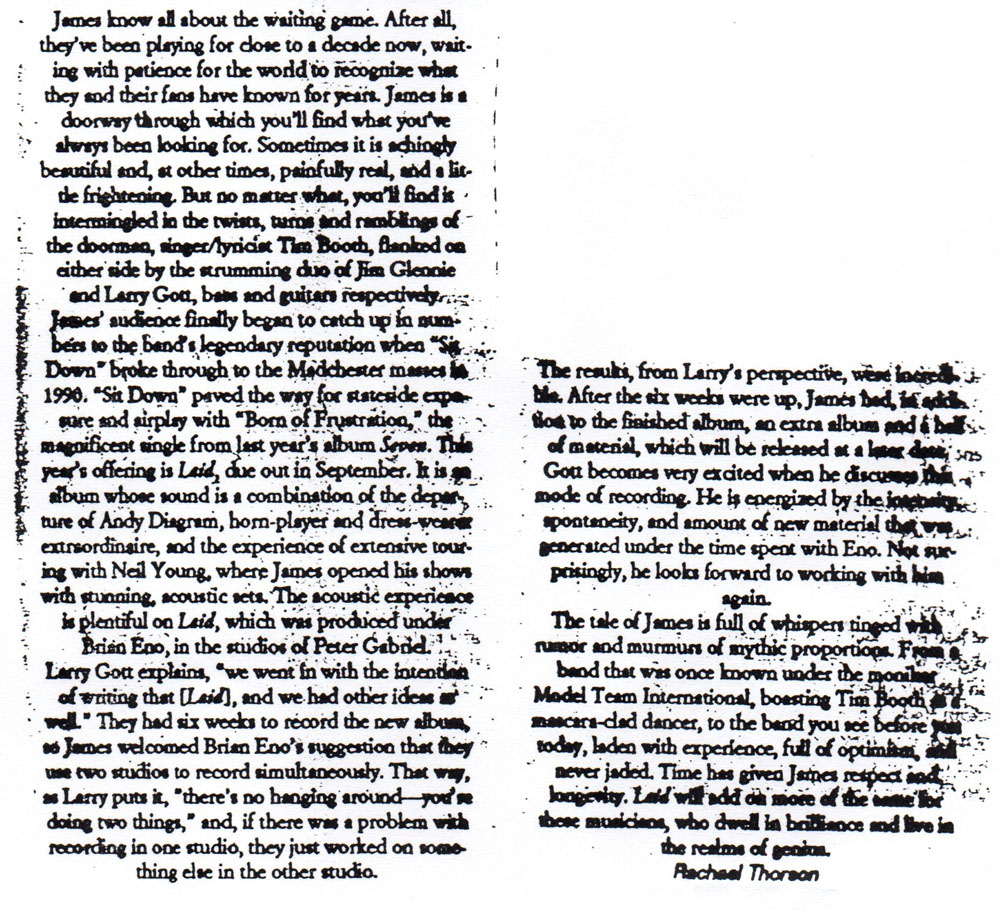 James know all about the waiting game. After all,
they've been playing for close to a decade now, wait-
ing with patience for the world to recognize what
they and their fans have known for years. James is a
doorway through which you'll find what you've
always been looking for. Sometimes it is achingly
beautiful and, at other times, painfully real, and a lit-
tle frightening. But no matter what, you'll find it
intermingled in the twists, turns and ramblings of
the doorman, singer/lyricist Tim Booth, flanked on
either side by the strumming duo of Jim Glennie
and Larry Gott, bass and guitars respectively.
James' audience finally began to catch up in num-
bers to the band's legendary reputation when "Sit
Down" broke through to the Madchester masses in
1990. "Sit Down" paved the way for stateside expo-
sure and airplay with "Born of Frustration," the
magnificent single from last year's album Seven. This
year's offering is Laid, due out in September. It is an
album whose sound is a combination of the depar-
ture of Andy Diagram, horn-player and dress-wearer
extraordinaire, and the experience of extensive tour-
ing with Neil Young, where James opened his shows
with stunning, acoustic sets. The acoustic experience
is plentiful on Laid, which was produced under
Brian Eno, in the studios of Peter Gabriel.
Larry Gott explains, "we went in with the intention
of writing that [Laid], and we had other ideas as
well." They had six weeks to record the new album,
so James welcomed Brian Eno's suggestion that they
use two studios to record simultaneously. That way,
as Larry puts it, "there's no hanging around—you're
doing two things," and, if there was a problem with
recording in one studio, they just worked on some-
thing else in the other studio.
The results, from Larry's perspective, were incredi-
ble. After the six weeks were up, James had, in addi-
tion to the finished album, an extra album and a half
of material, which will be released at a later date.
Gott becomes very excited when he discusses this
mode of recording. He is energized by the intensity,
spontaneity, and amount of new material that was
generated under the time spent with Eno. Not sur-
prisingly, he looks forward to working with him
again.
The tale of James is full of whispers tinged with
rumor and murmurs of mythic proportions. From a
band that was once known under the moniker
Model Team International, boasting Tim Booth as a
mascara-clad dancer, to the band you see before you
today, laden with experience, full of optimism, and
never jaded. Time has given James respect and
longevity. Laid will add on more of the same for
these musicians, who dwell in brilliance and live in
the realms of genius.
Rachael Thorson